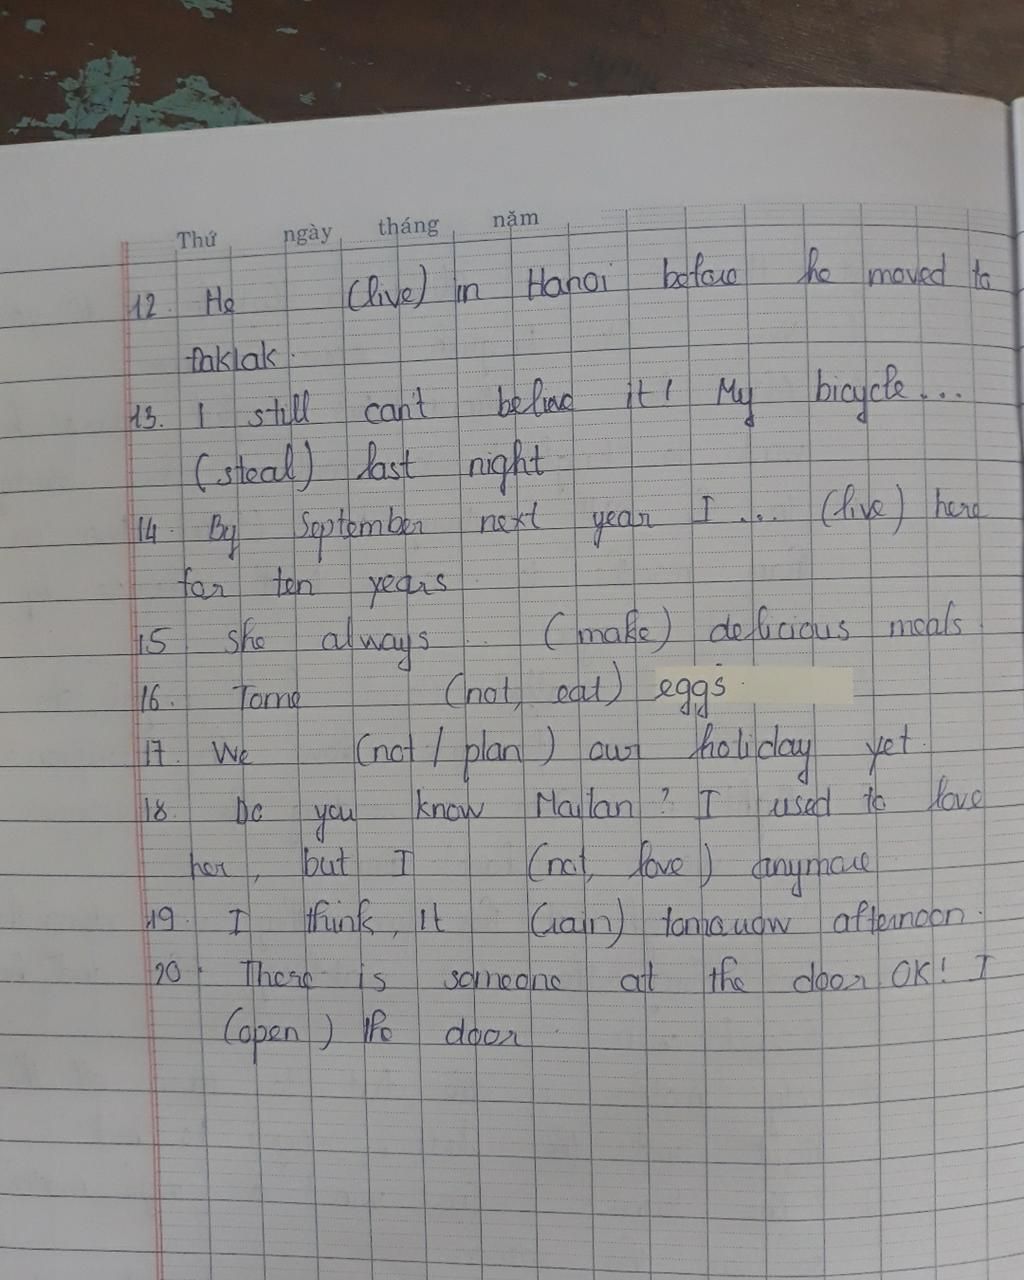 Thứ ngày tháng năm
12. He (live) in Hanoi before he moved to
Đaklak.
13. I still can't believe it! My bicycle...
(steal) last night
14. By September next year I ... (live) here
for ten years
15 she always .. (make) delicious meals
16. Tome (not, eat) eggs.
17. We (not / plan ) our holiday yet.
18. Do you know Mailan? I used to love
her, but I (not, love) anymore
19. I think, it (rain) tomorrow afternoon.
20. There is someone at the door OK! I
(open) the door